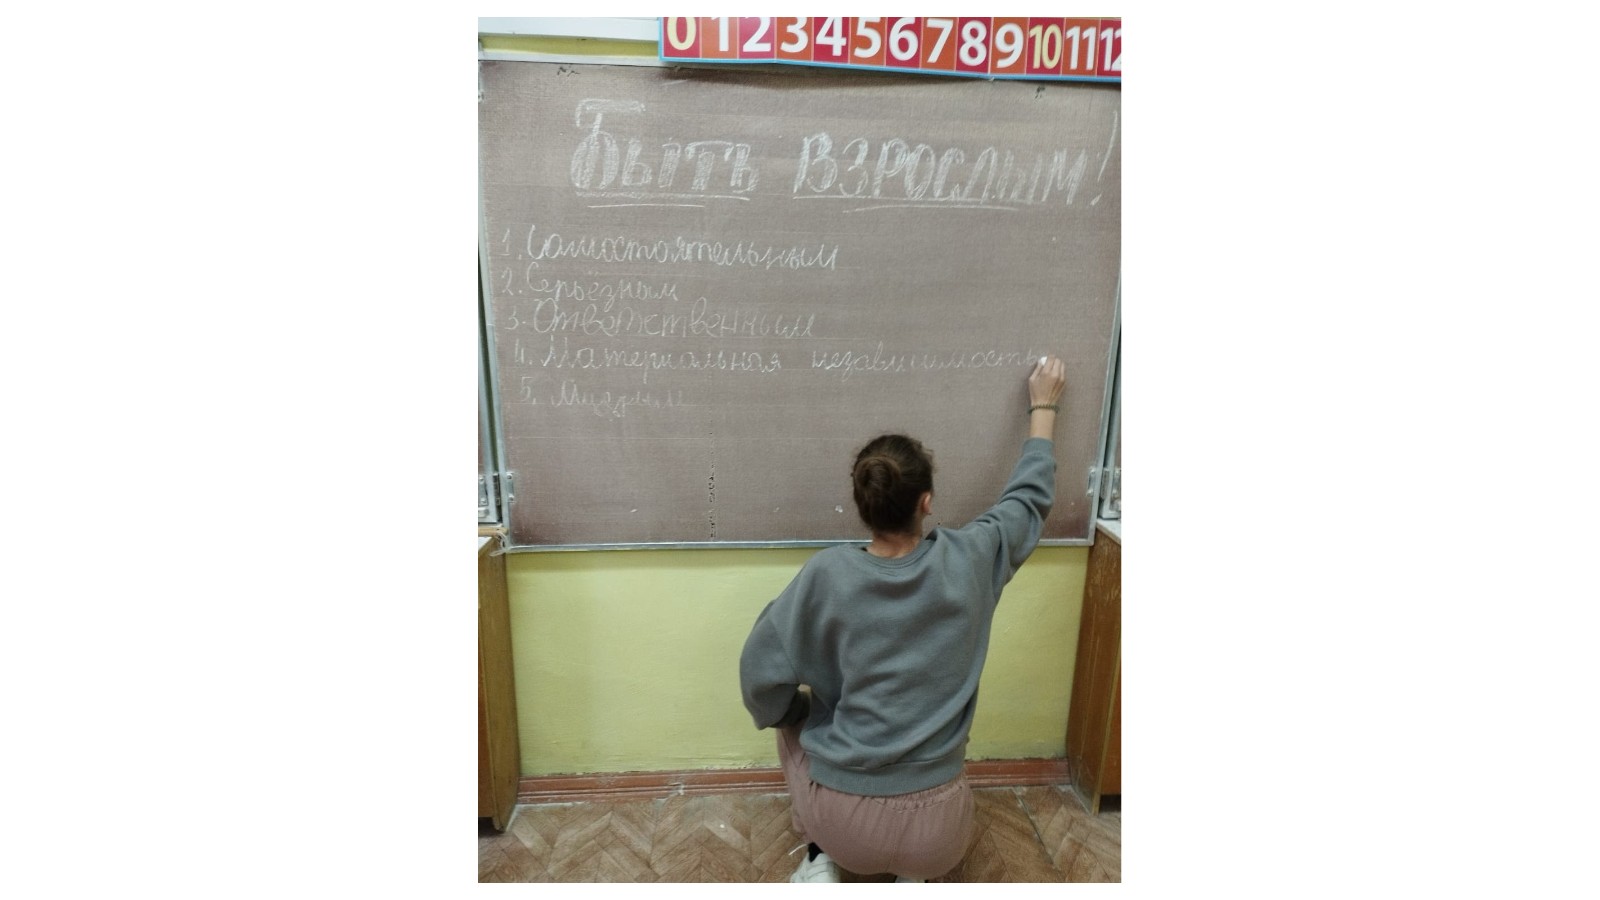 0 1 2 3 4 5 6 7 8 9 10 11 12
Быть взрослым!
1. Самостоятельным
2. Серьёзным
3. Ответственным
4. Материальная независимость
5. Мудрым